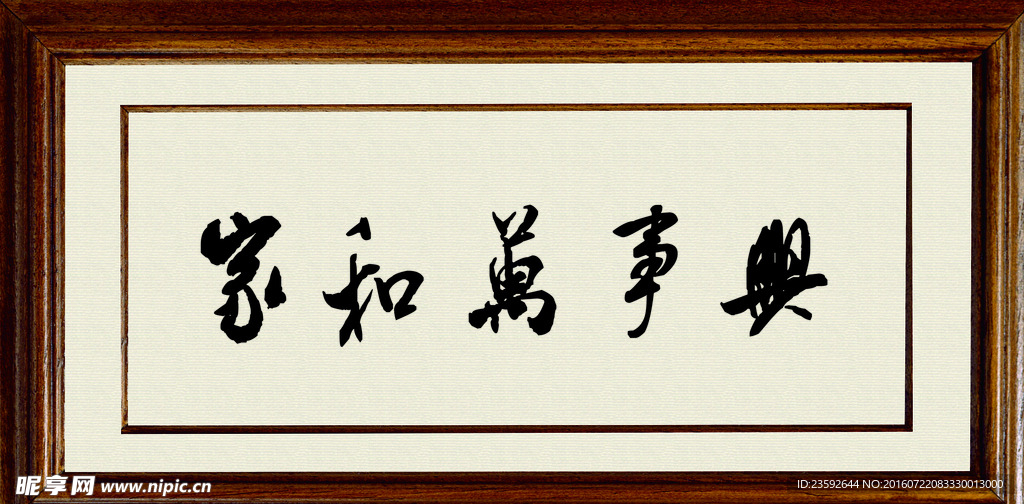 家和萬事興
昵享网 www.nipic.cn
ID:23592644 NO:20160722083330013000